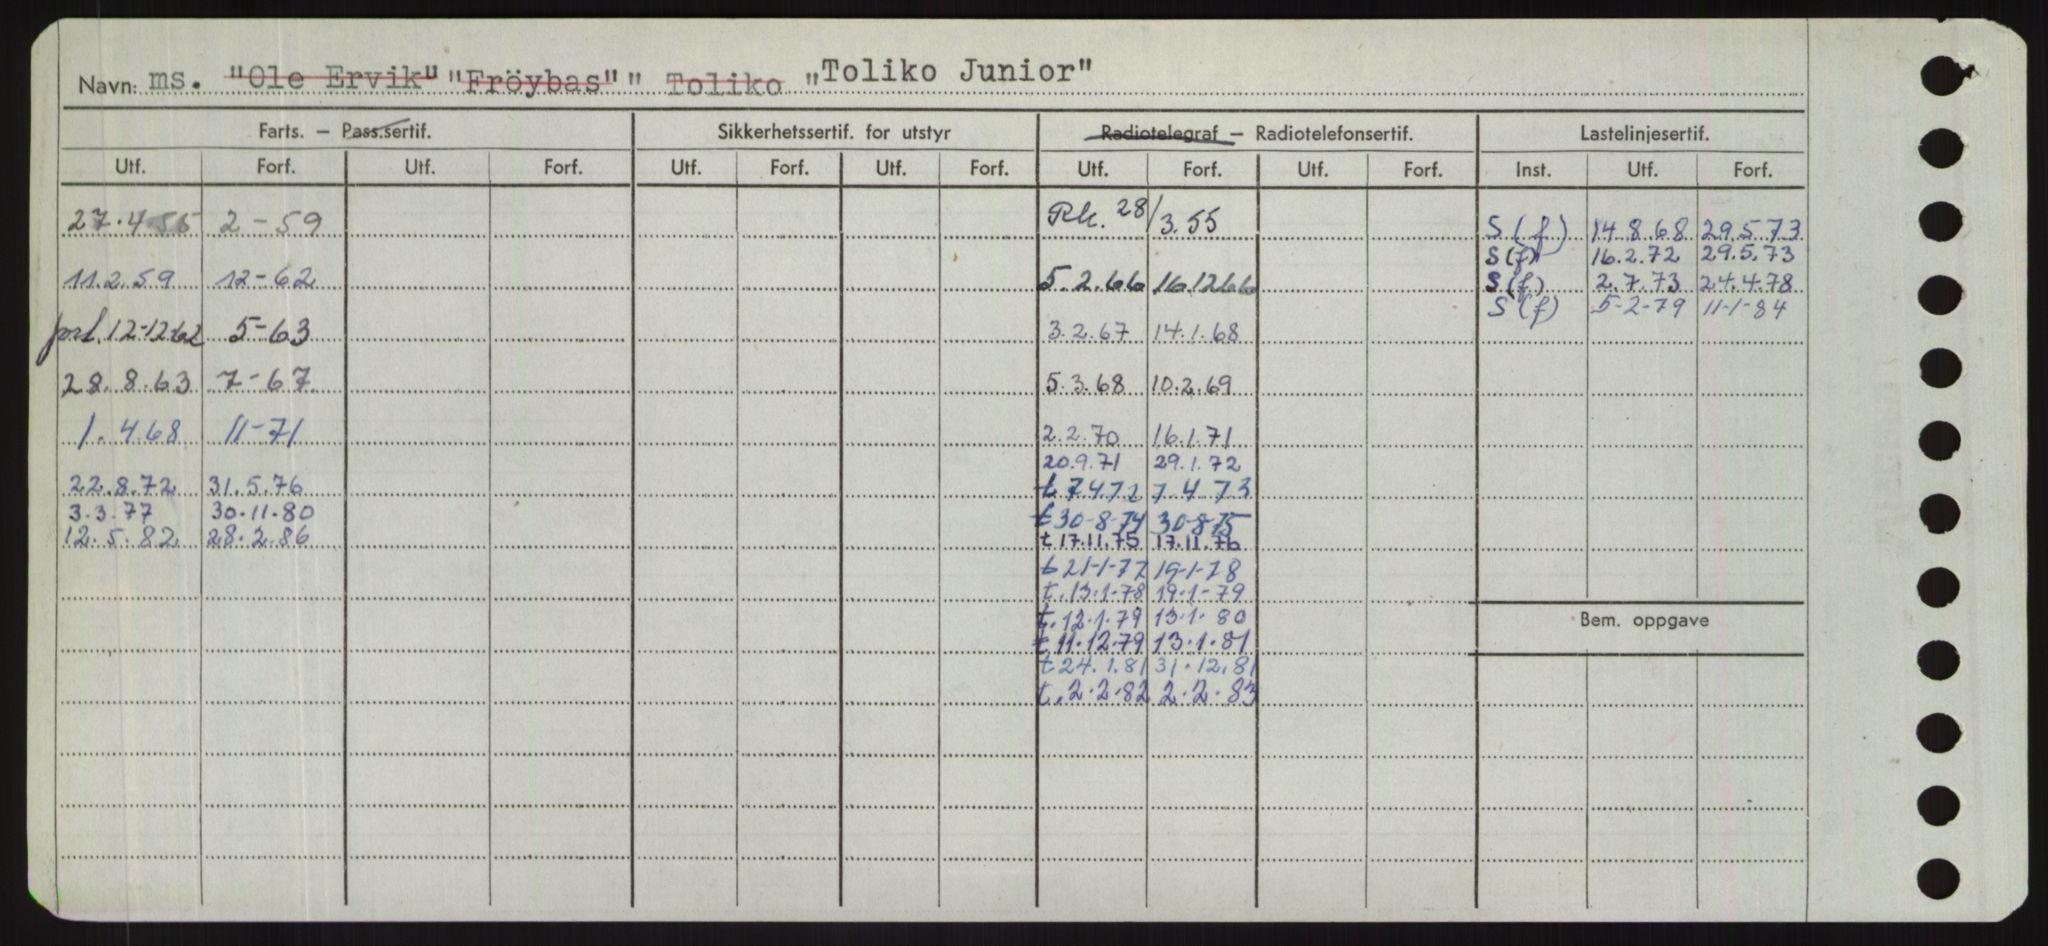 Navn: ms. "Ole Ervik" "Fröybas" " Toliko "Toliko Junior"
Farts. — Pass.sertif. Sikkerhetssertif. for utstyr Radiotelegraf — Radiotelefonsertif. Lastelinjesertif.
Utf. Forf. Utf. Forf. Utf. Forf. Utf. Forf. Utf. Forf. Utf. Forf. Inst. Utf. Forf.
27.4 55 2-59 Rk. 28/3.55 S(f) 14.8.68 29.5.73
S(f) 16.2.72 29.5.73
11.2.59 12-62 5.2.66 16.12 66 S(f) 2.7.73 24.4.78
S(f) 5-2-79 11-1-84
prl. 12-12 62 5-63 3.2.67 14.1.68
28.8.63 7-67 5.3.68 10.2.69
1.4.68 11-71 2.2.70 16.1.71
20.9.71 29.1.72
22.8.72 31.5.76 t 7 4 72 7.4 73
3.3.77 30.11.80 t 30-8-74 30-8-75
12.5.82 28.2.86 t 17.11.75 17.11.76
t 21-1-77 19-1-78
t. 13.1-78 19.1-79
t. 12.1.79 13.1.80
Bem. oppgave
t 11.12.79 13.1.81
t 24.1.81 31.12.81
t. 2.2.82 2.2.83